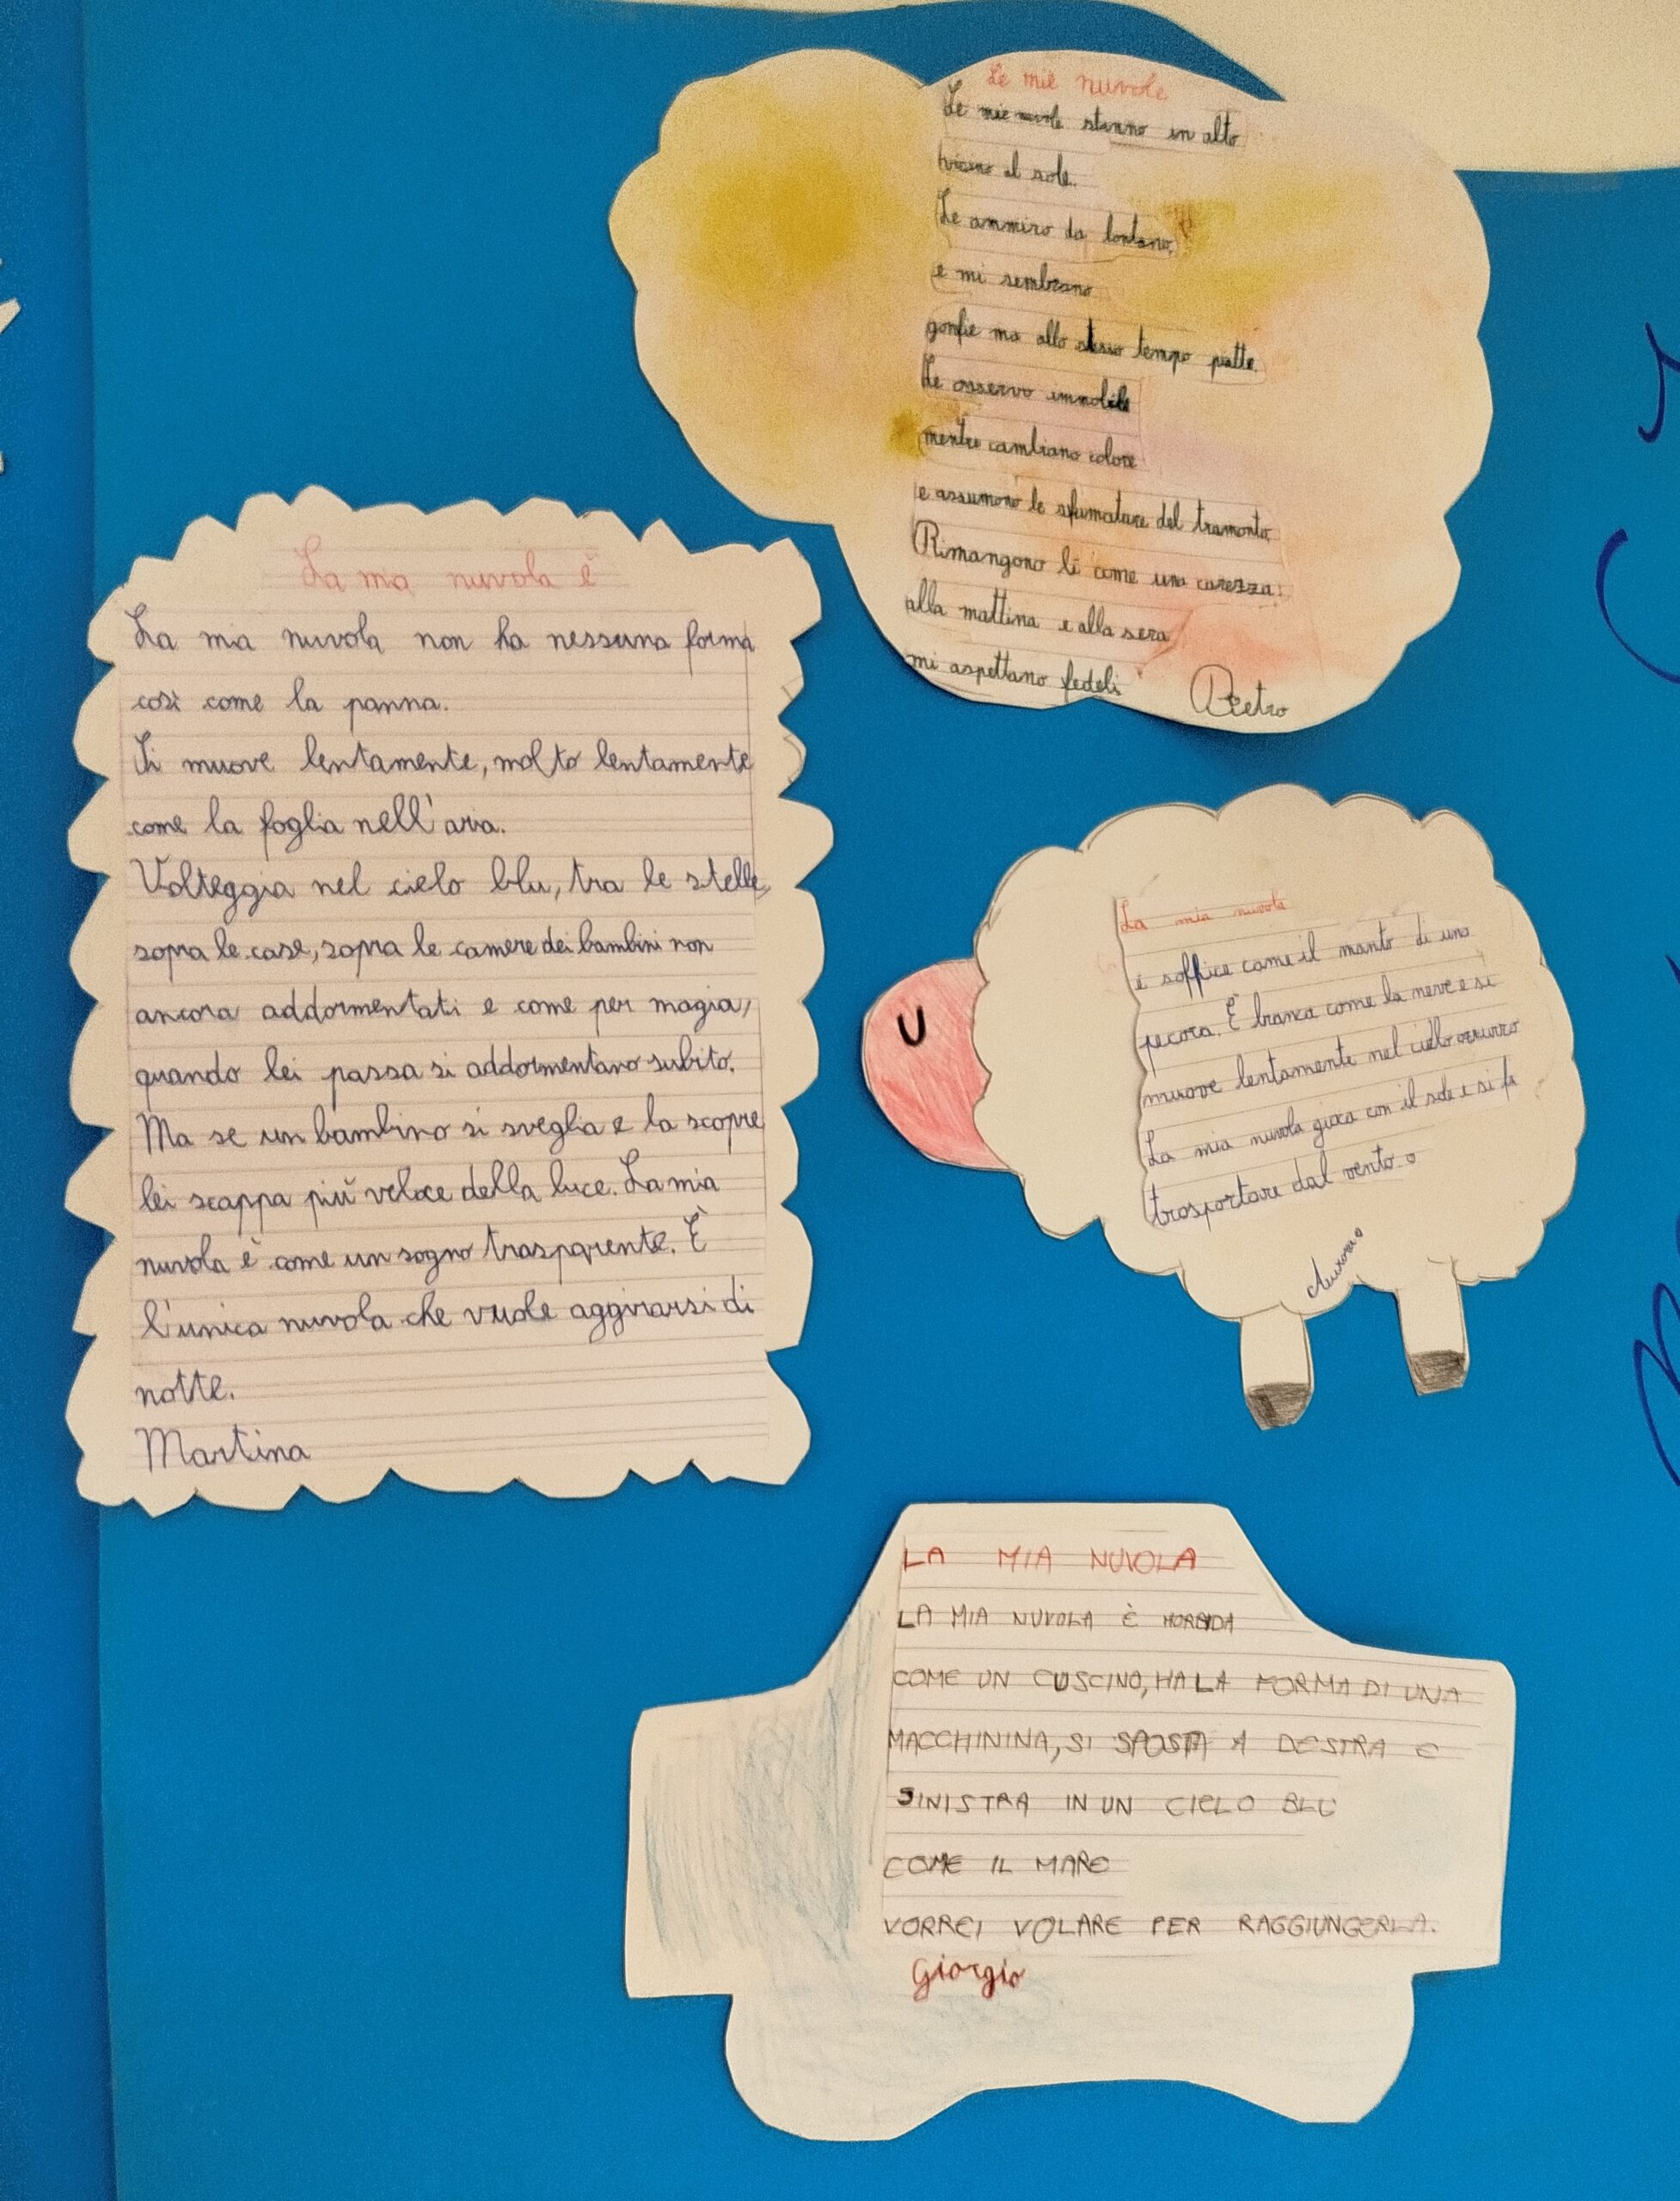 Le mie nuvole
Le mie nuvole stanno in alto
vicino al sole.
Le ammiro da lontano,
e mi sembrano
gonfie ma allo stesso tempo piatte.
Le osservo immobile
mentre cambiano colore
e assumono le sfumature del tramonto.
Rimangono lì come una carezza:
alla mattina e alla sera
mi aspettano fedeli
Pietro
La mia nuvola è
La mia nuvola non ha nessuna forma
così come la panna.
Si muove lentamente, molto lentamente
come la foglia nell'aria.
Volteggia nel cielo blu, tra le stelle,
sopra le case, sopra le camere dei bambini non
ancora addormentati e come per magia,
quando lei passa si addormentano subito.
Ma se un bambino si sveglia e la scopre
lei scappa più veloce della luce. La mia
nuvola è come un sogno trasparente. È
l'unica nuvola che vuole aggirarsi di
notte.
Martina
La mia nuvola
è soffice come il manto di una
pecora. È bianca come la neve e si
muove lentamente nel cielo azzurro
La mia nuvola gioca con il sole e si fa
trosportare dal vento.
Aurora
LA MIA NUVOLA
LA MIA NUVOLA È MORBIDA
COME UN CUSCINO, HA LA FORMA DI UNA
MACCHININA, SI SPOSTA A DESTRA E
SINISTRA IN UN CIELO BLU
COME IL MARE
VORREI VOLARE PER RAGGIUNGERLA.
Giorgio